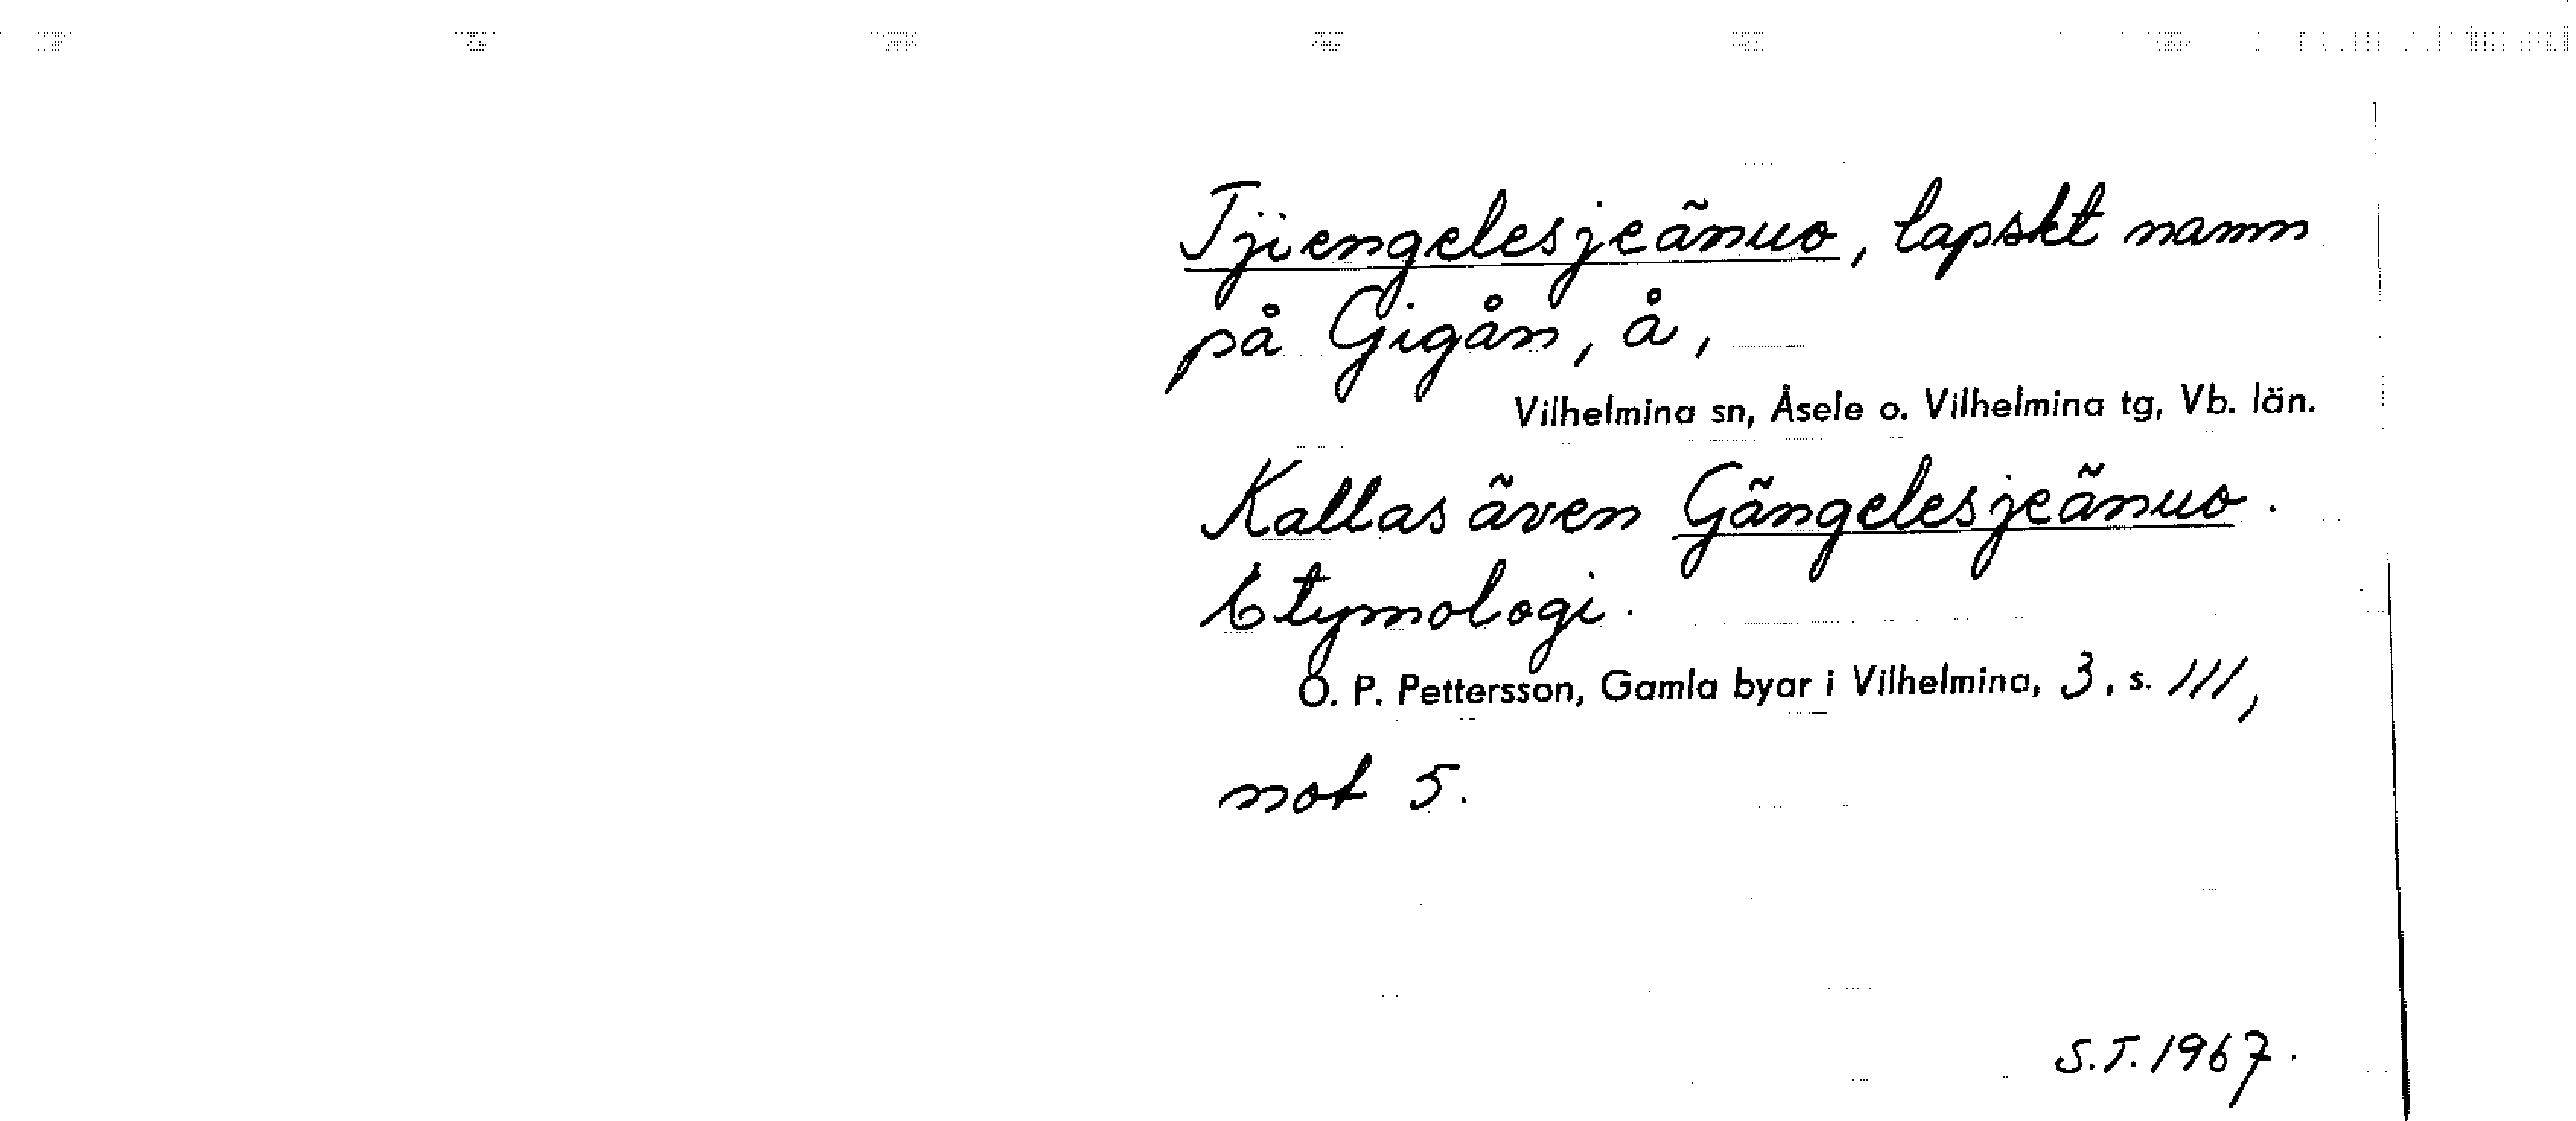 Tjiengelesjeänuo, lapskt namn
på Gigån, å,
Vilhelmina sn, Åsele o. Vilhelmina tg, Vb. län.
Kallas även Gängelesjeänuo.
Etymologi.
O. P. Pettersson, Gamla byar i Vilhelmina, 3, s. 111,
not 5.
S.T. 1967.